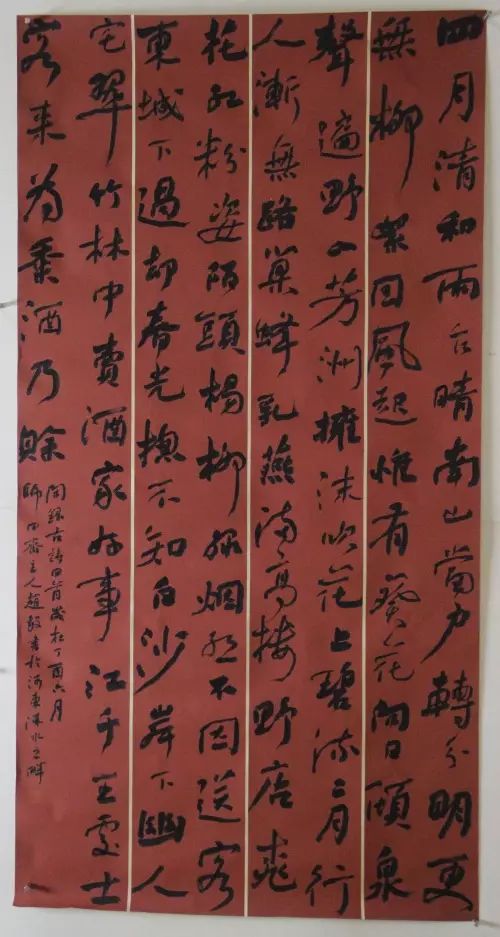 四月清和雨乍晴南山當戶轉分明更
無柳絮因風起惟有葵花向日傾泉
聲遍野入芳洲擁沫吹花上碧流二月行
人漸無路巢蜂乳燕滿高樓野店桃
花紅粉姿陌頭楊柳綠烟絲不因送客
東城下過却春光摠不知白沙岸下幽人
宅翠竹林中賣酒家好事江干王處士
客来為黍酒乃賒
古詩四首歲在丁酉六月
師田齋主人趙書於河東涑水之畔